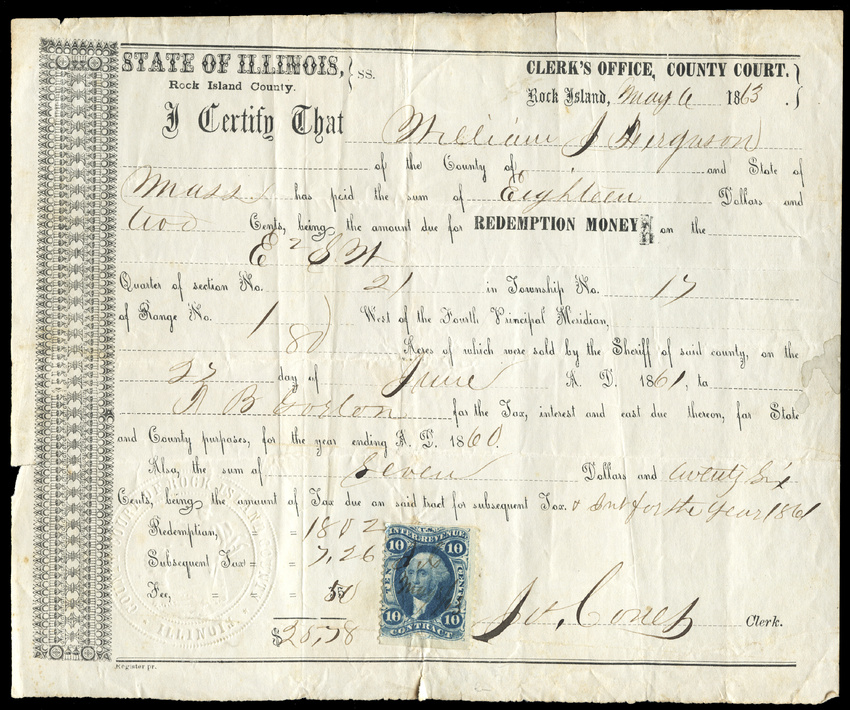 STATE OF ILLINOIS, } ss.
Rock Island County.
CLERK'S OFFICE, COUNTY COURT. }
Rock Island, May 6 1863. }
I Certify That William J Ferguson
of the County of , and State of
Mass. has paid the sum of Eighteen Dollars and
two Cents, being the amount due for REDEMPTION MONEY on the
E 2 SW
Quarter of section No. 21 in Township No. 17
of Range No. 1 West of the Fourth Principal Meridian,
80 Acres of which were sold by the Sheriff of said county, on the
27 day of June A. D. 1861, to
B Gorton for the Tax, interest and cost due thereon, for State
and County purposes, for the year ending A. D. 1860.
Also, the sum of Seven Dollars and twenty six
Cents, being the amount of Tax due on said tract for subsequent Tax. & Int for the Year 1861
Redemption, = = 18 02
Subsequent Tax = = 7,26
Fee, = = = 50
$25,78
INTER. REVENUE
10 10
TEN CENTS
10 10
CONTRACT
Clerk.
ROCK ISLAND COUNTY
ILLINOIS
Register pr.